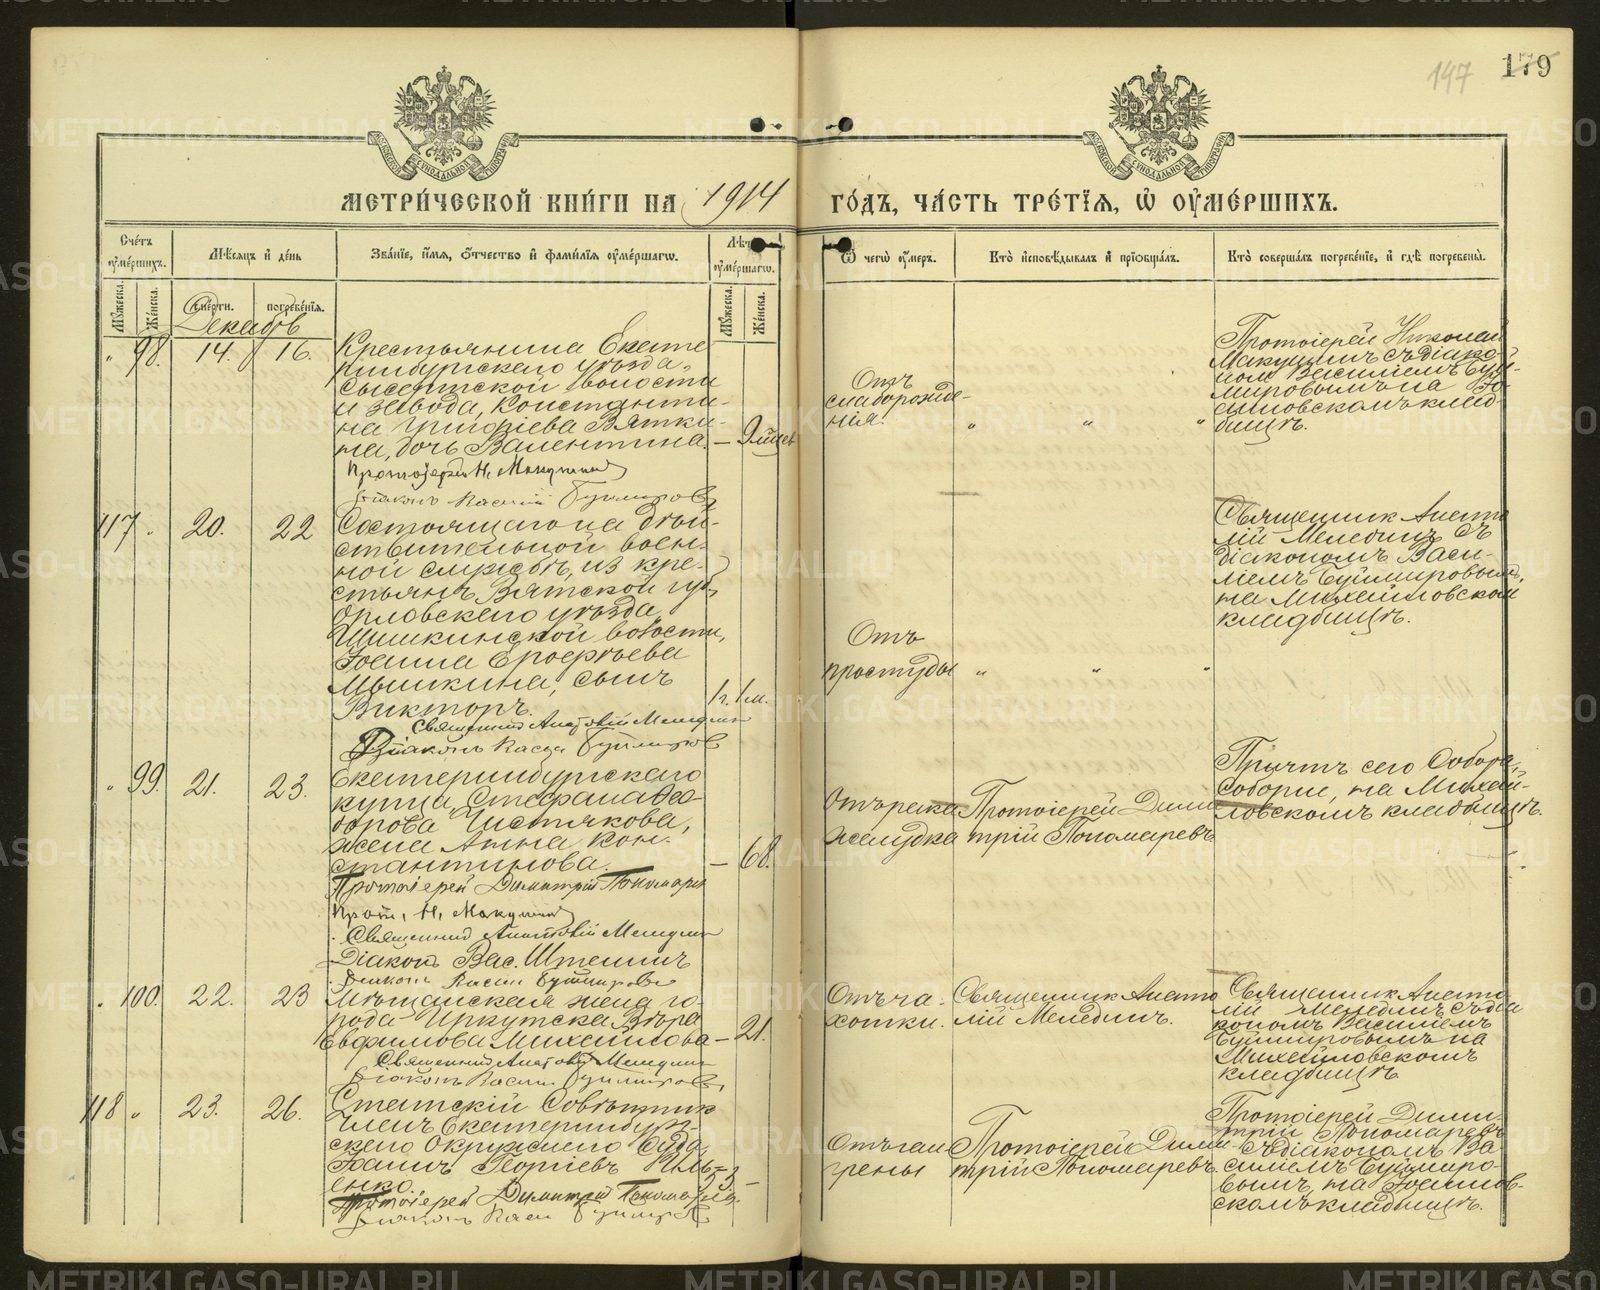 147 179
МЕТРИ́ЧЕСКОЙ КНИ́ГИ НА 1914 ГО́ДЪ, ЧА́СТЬ ТРЕ́ТЇѦ, Ѡ ОУМЕ́РШИХЪ.
Сче́тъ оуме́ршихъ.
Мѣсѧцъ и день
Зва́нїе, и́мѧ, о́тчество и фами́лїѧ оуме́ршагѡ.
Лѣта оуме́ршагѡ.
Ѿ чегѡ оу́меръ.
Кто̀ исповѣ́дывалъ и прїѡбща́лъ.
Кто̀ соверша́лъ погребе́нїе, и гдѣ̀ погребены̀.
Мꙋ́жеска. Же́нска. сме́рти. погребе́нїѧ. Мꙋ́жеска. Же́нска.
Декабрь
" 98. 14. 16.
Крестьянина Екате
ринбургскаго уѣзда,
Сысертской волости
и завода, Константи-
на Григорьева Вятки-
на, дочь Валентина. – 9 мѣсц
Протоіерей Н. Макушинъ
Діаконъ Василій Буймировъ
Отъ
слаборожде-
нія. " " "
Протоіерей Николай
Макушинъ съ діако-
номъ Василіемъ Буй-
мировымъ на Іо-
анновскомъ клад-
бищѣ.
117 " 20. 22
Состоящаго на дѣй-
ствительной воен-
ной службѣ, из кре-
стьянъ Вятской губ.,
Орловскаго уѣзда,
Шишкинской волости,
Іоанна Ерофѣева
Мышкина, сынъ
Викторъ. 1 г. 1 м.
Священникъ Анатолій Меледин
Діаконъ Васил Буймировъ
Отъ
простуды " " "
Священник Анато
лій Меледин съ
діакономъ Васи-
ліемъ Буймировым,
на Михайловском
кладбищѣ.
" 99. 21. 23.
Екатеринбургскаго
купца, Стефана Ѳео-
дорова Чистякова,
жена Анна Кон-
стантинова. – 68.
Протоіерей Димитрій Пономарев
Прот. Н. Макушинъ
Священник Анатолій Меледин
Діаконъ Вас. Штенинъ
Діаконъ Васил Буймировъ
Отъ рака
желудка
Протоіерей Дими
трій Пономаревъ
Причтъ сего Собора,
соборне, на Михай-
ловскомъ кладбищѣ.
" 100. 22. 23
Мѣщанская жена го-
рода Иркутска Вѣра
Евфимова Михайлова – 21.
Священник Анатолій Меледин
Діаконъ Васил Буймировъ
Отъ ча-
хотки.
Священник Анато
лій Меледин.
Священник Анато-
лій Меледин съ діа
кономъ Василіемъ
Буймировымъ на
Михайловскомъ
кладбищѣ.
118 " 23. 26.
Статскій Совѣтник
Членъ Екатеринбург-
скаго Окружнаго Суда,
Іоаннъ Георгіевъ Иль-
енко. 53 –
Протоіерей Димитрій Пономарев
Діаконъ Васил Буймировъ
Отъ ган
грены
Протоіерей Дими
трій Пономаревъ.
Протоіерей Дими-
трій Пономаревъ
съ діакономъ Ва
силіемъ Буймиро-
вымъ, на Іоаннов-
скомъ кладбищѣ.
METRIKI.GASO-URAL.RU